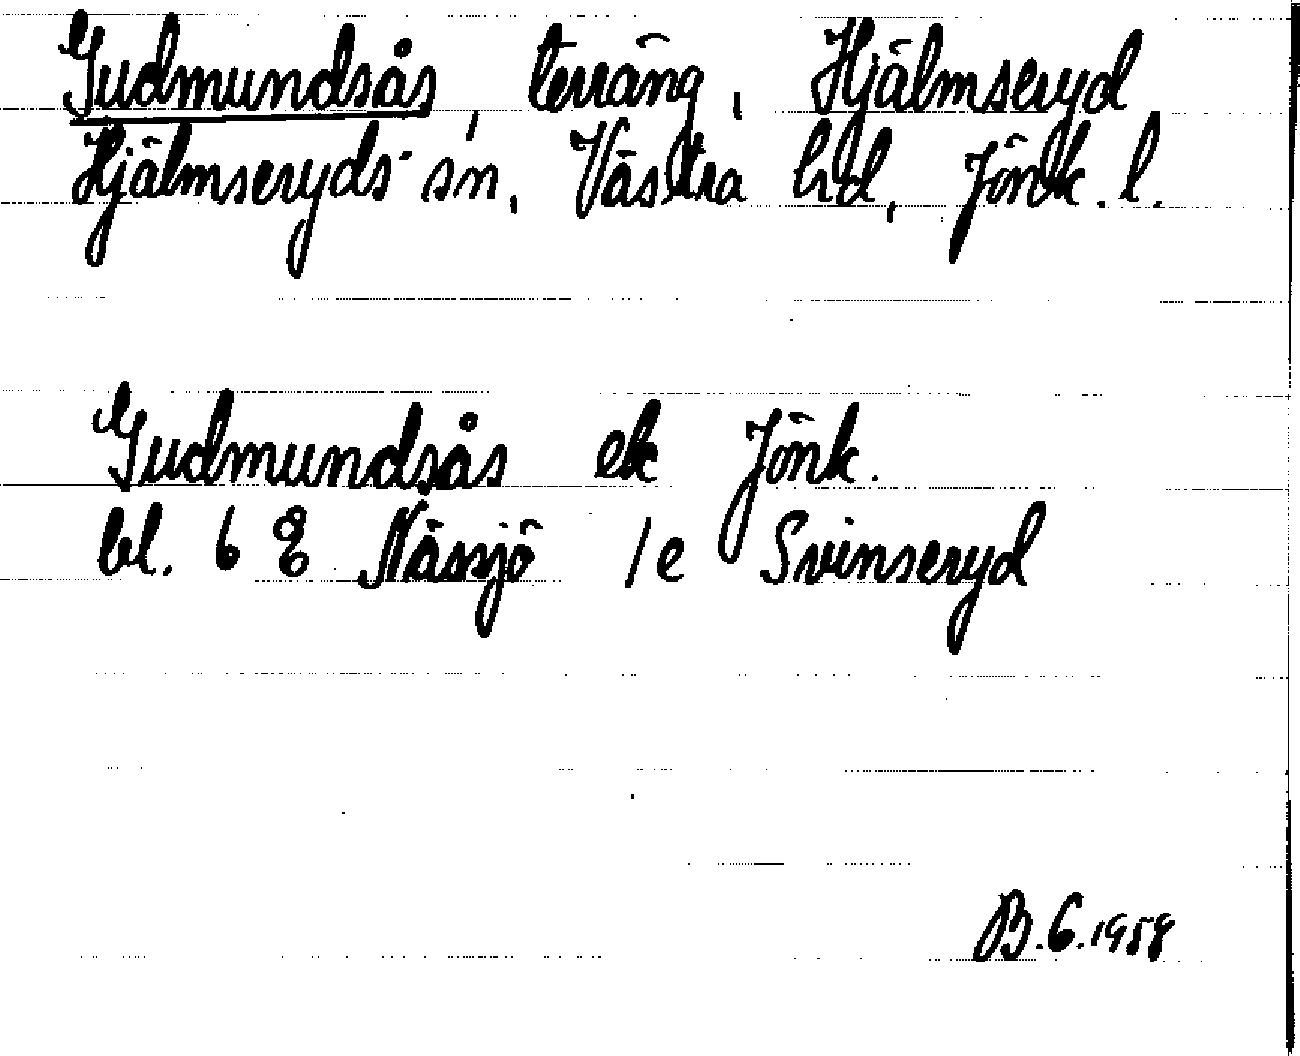 Gudmundsås, terräng, Hjälmseryd
Hjälmseryds sn, Västra hd, Jönk. l.
Gudmundsås ek Jönk.
bl. 6 E Nässjö 1e Svinseryd
B.G. 1958